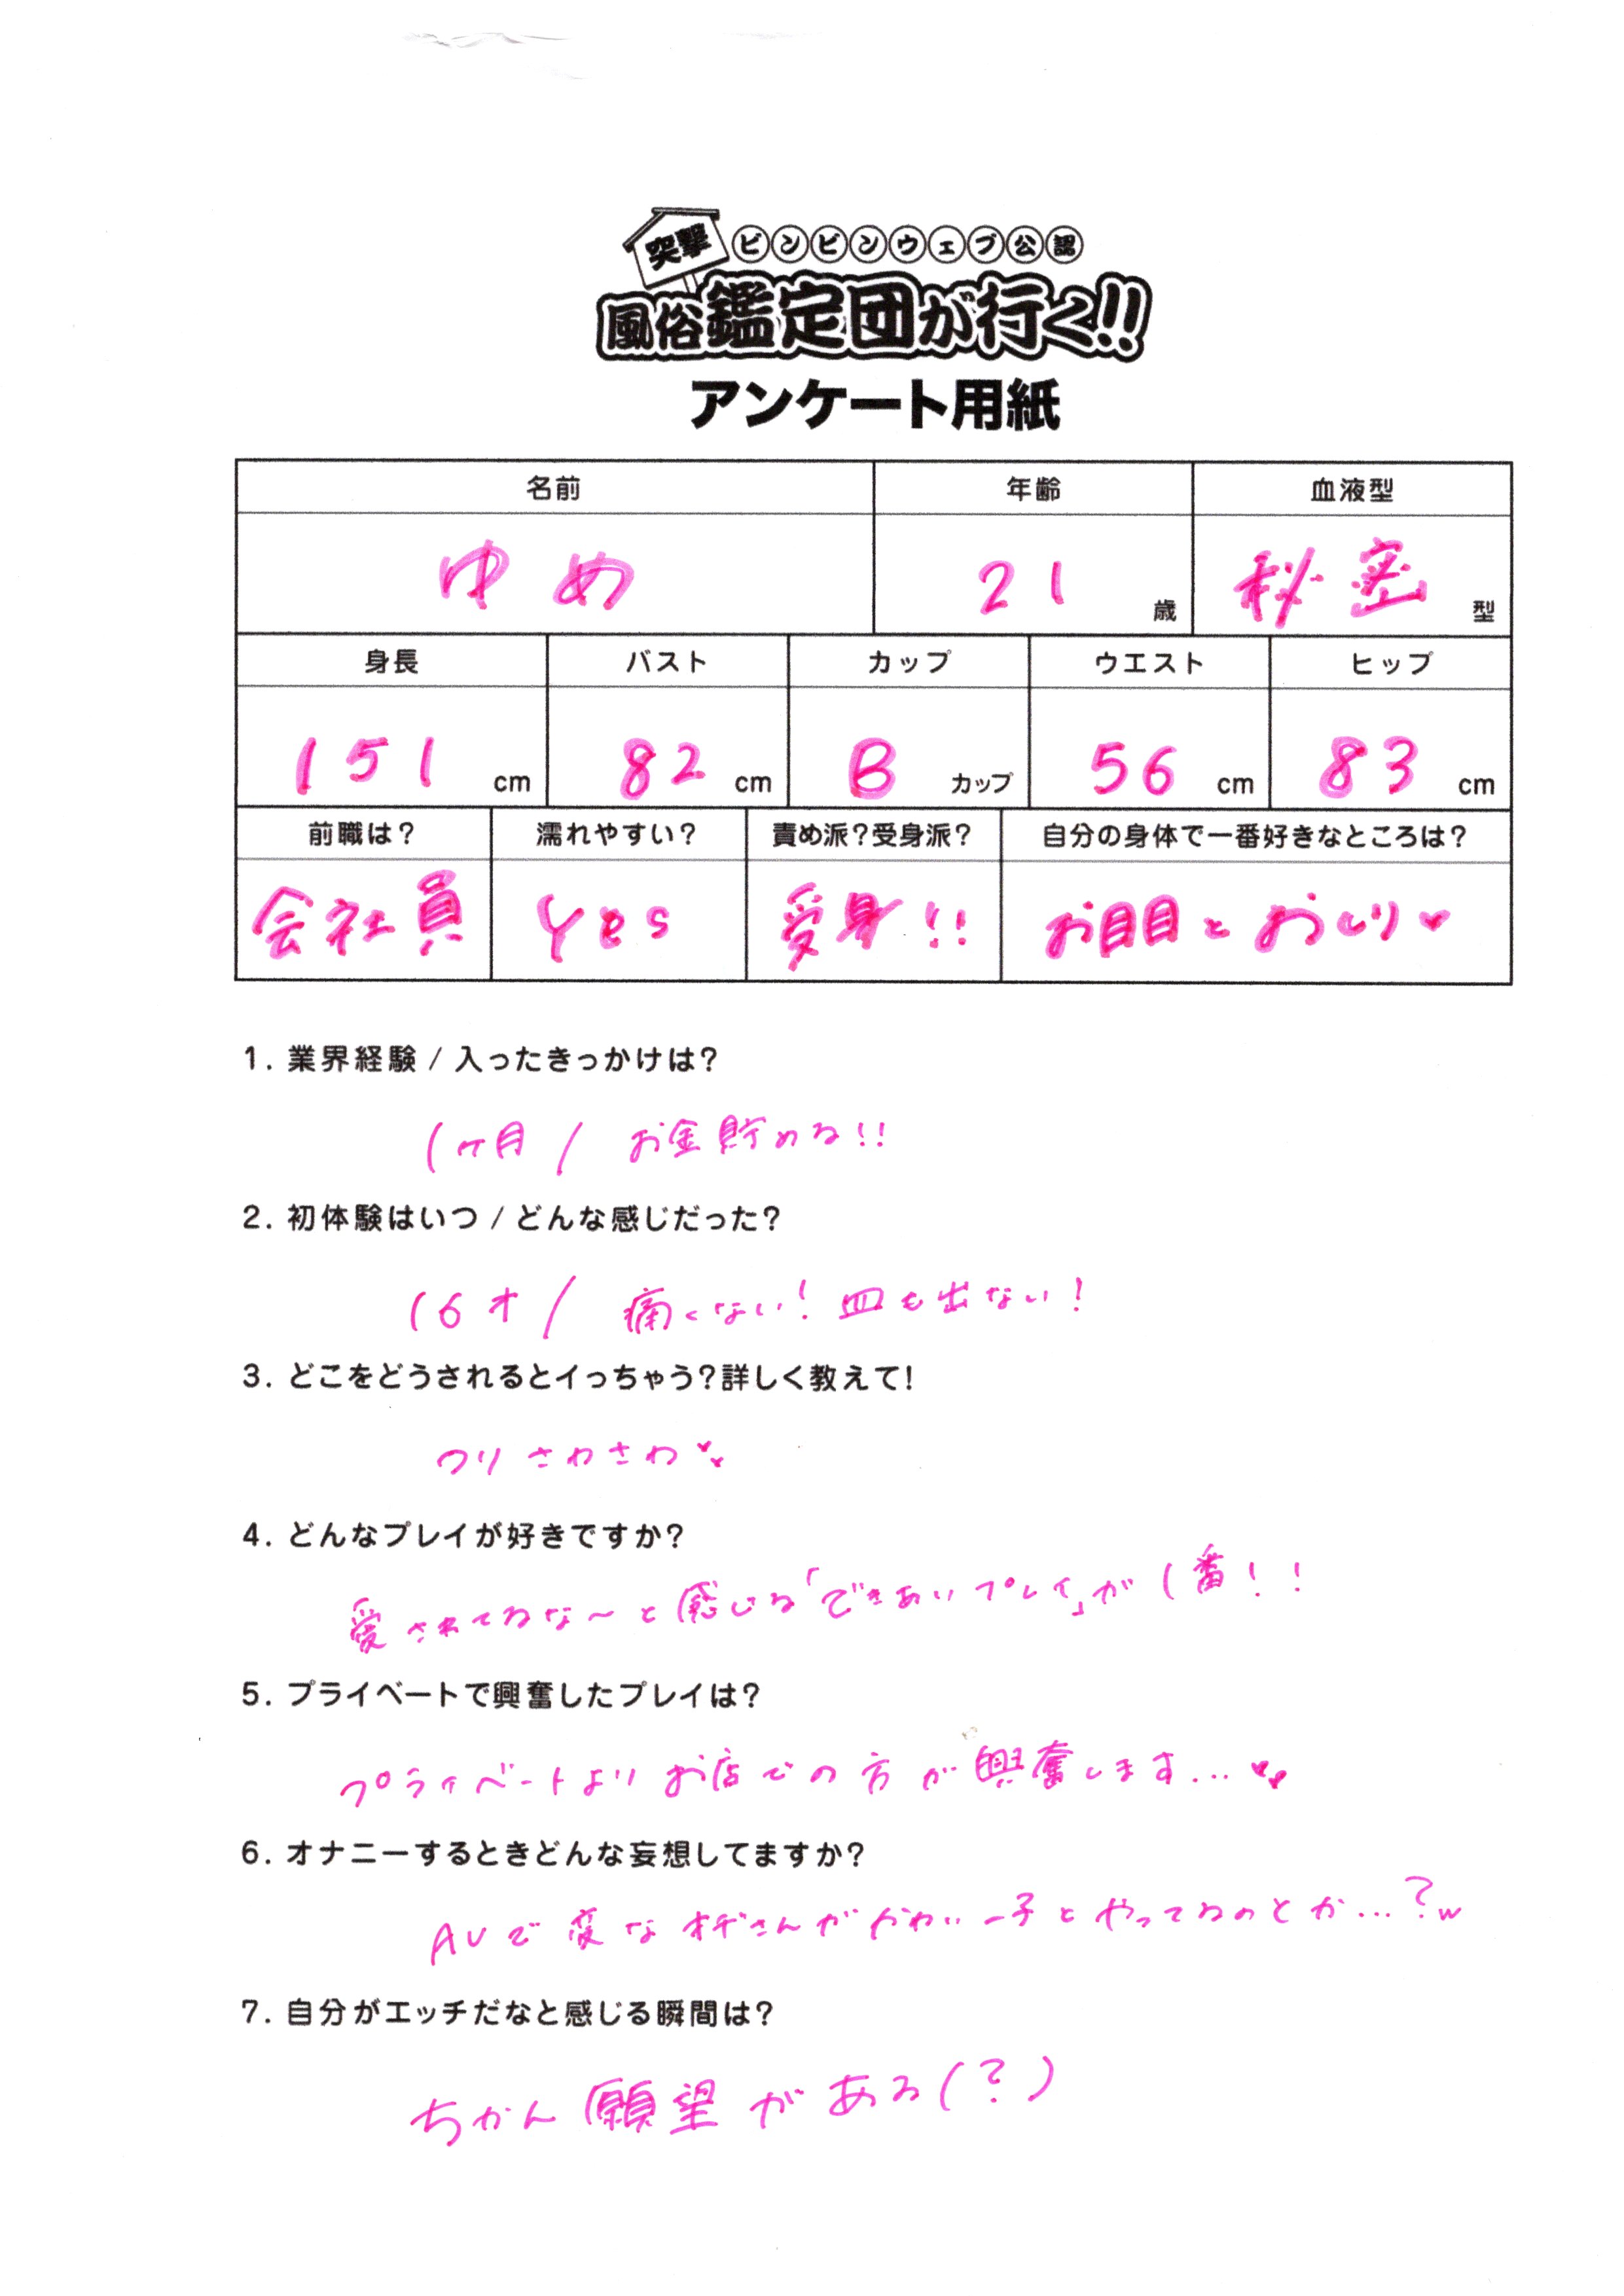 突撃
ビンビンウェブ公認
風俗鑑定団が行く!!
アンケート用紙
名前 年齢 血液型
ゆめ 21歳 秘密型
身長 バスト カップ ウエスト ヒップ
151cm 82cm Bカップ 56cm 83cm
前職は? 濡れやすい? 責め派?受身派? 自分の身体で一番好きなところは?
会社員 Yes 受身!! お目目とおしり♥
1. 業界経験 / 入ったきっかけは?
1ヶ月 / お金貯める!!
2. 初体験はいつ / どんな感じだった?
3. どこをどうされるとイっちゃう?詳しく教えて!
クリさわさわ♥♥
4. どんなプレイが好きですか?
愛されてるな〜と感じる「できあいプレイ」が1番!!
5. プライベートで興奮したプレイは?
プライベートよりお店での方が興奮します…♥♥
6. オナニーするときどんな妄想してますか?
AVで変なオヂさんがかわいー子とやってるのとか…?w
7. 自分がエッチだなと感じる瞬間は?
ちかん願望がある(?)